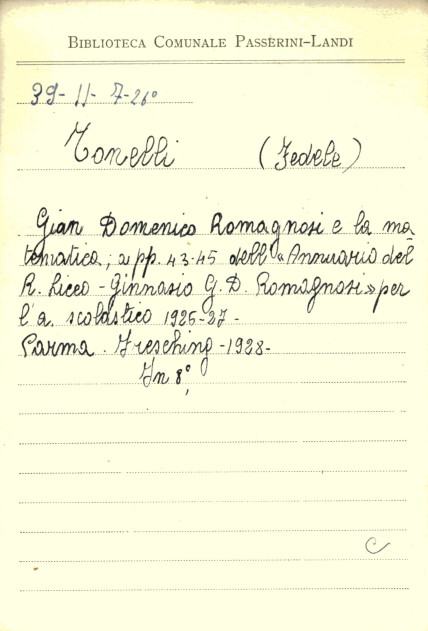 BIBLIOTECA COMUNALE PASSERINI-LANDI
39- II- 7-26°
Tonelli (Fedele)
Gian Domenico Romagnosi e la ma
tematica; a pp. 43-45 dell'«Annuario del
R. Liceo-Ginnasio G. D. Romagnosi» per
l'a. scolastico 1926-27-
Parma. Fresching-1928-
In 8°,
C